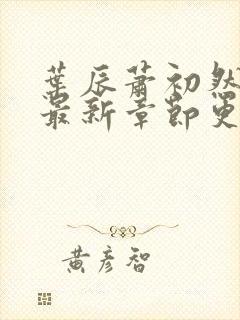 葉辰蕭初然
最新章節更
黃彥智